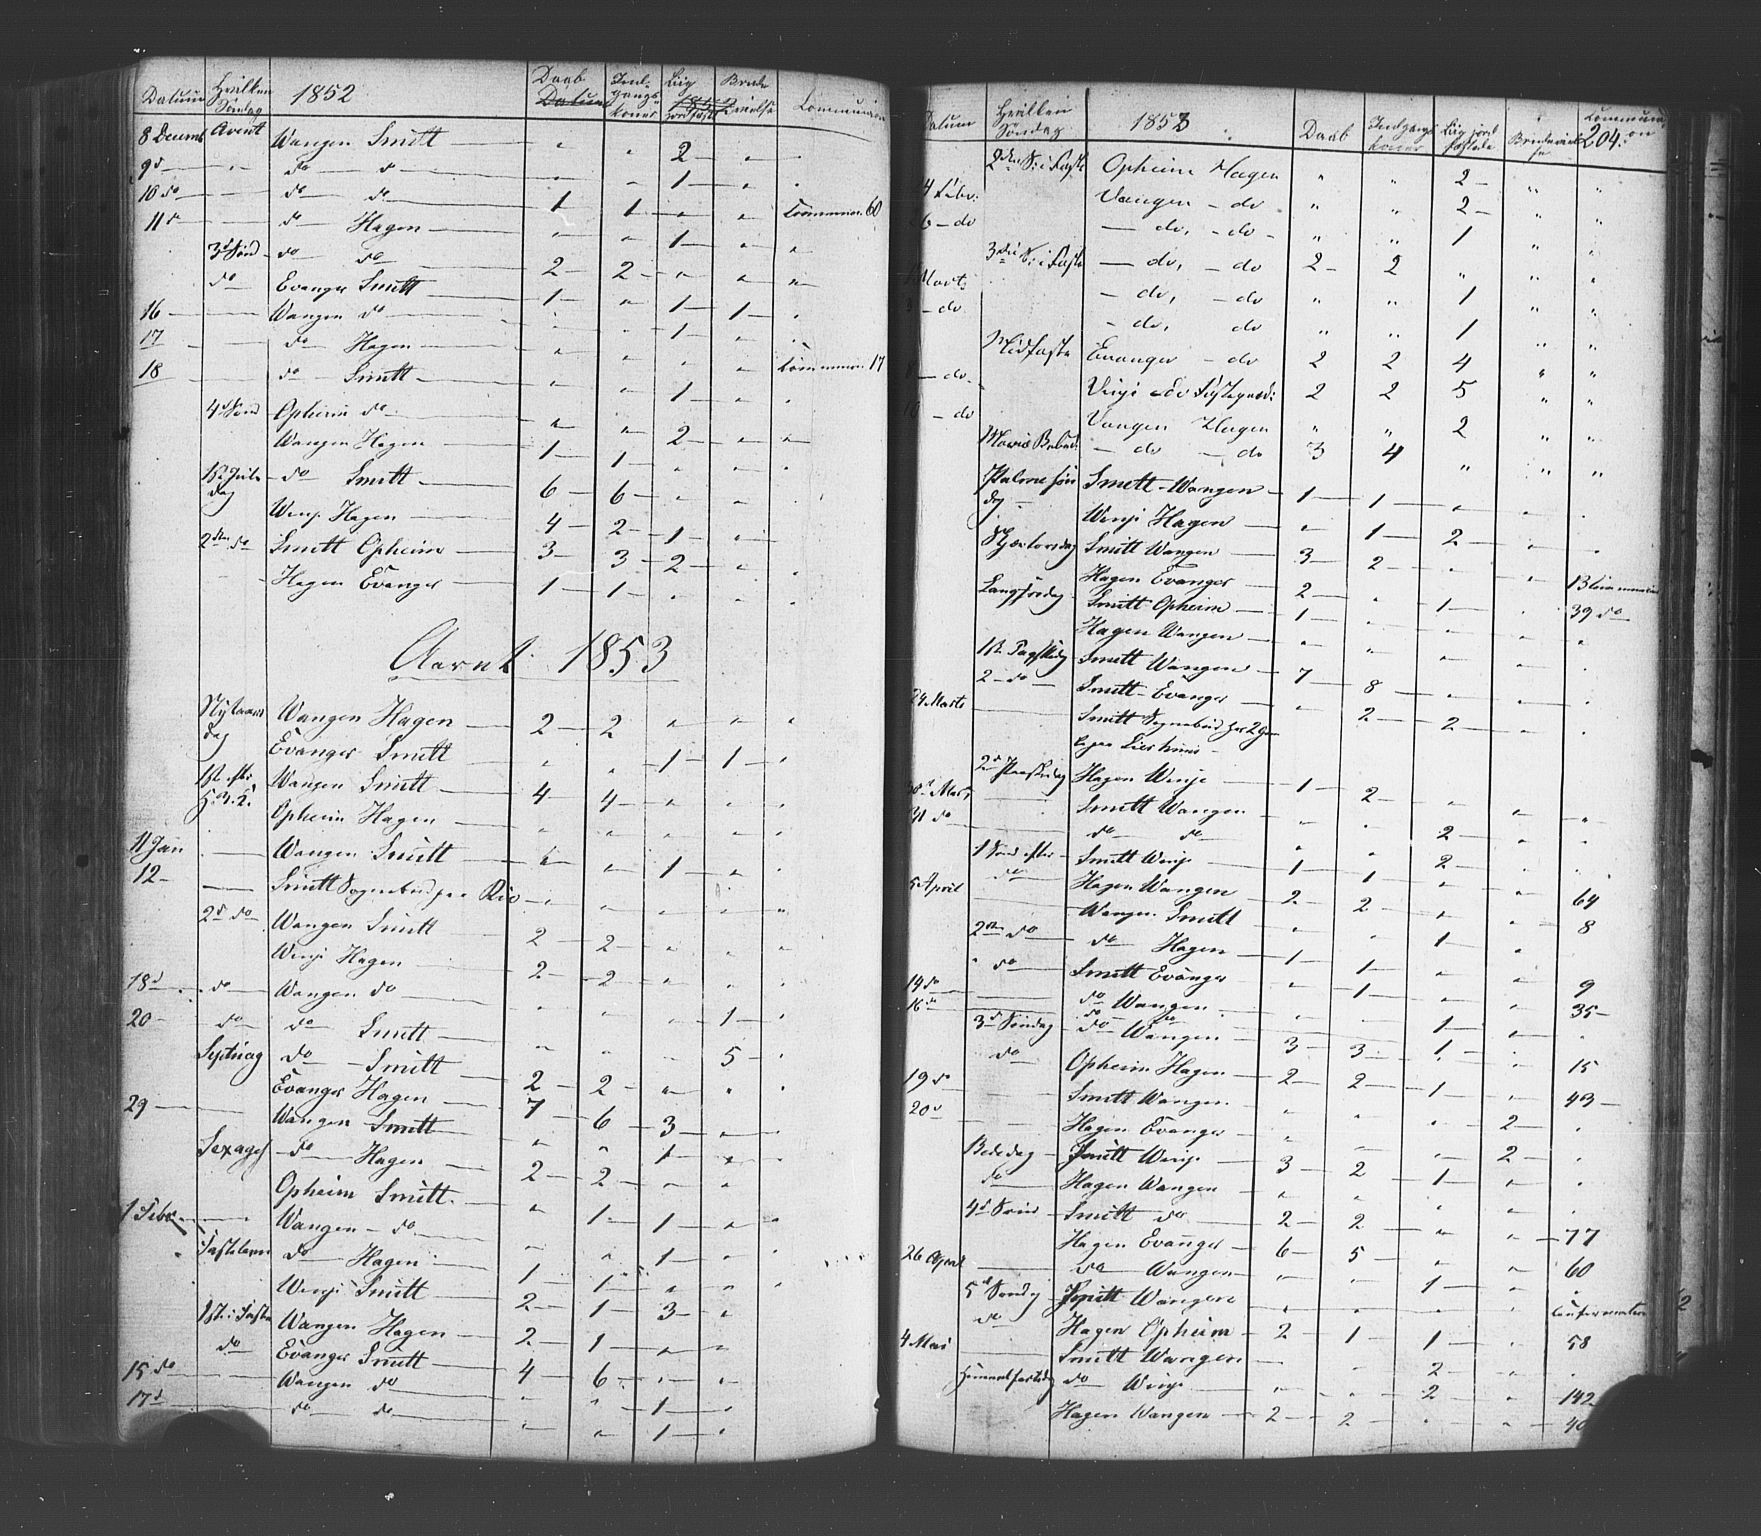 Datum Hvilken Søndag 1852 Daab Indgangs-koner Liig jordfæste Brude vielse Communion
8 Decemb Advent Wangen Smitt " " 2 " "
9 d " do d " " 1 " "
10 do do do 1 1 " " Commun. 60
11 d do Hagen " " 1 " "
3d Sønd do do 2 2 " " "
do Evanger Smitt 1 " 1 1 "
16 Wangen do " " 1 " "
17 do Hagen " " " " Commun. 17
18 do Smitt " " 1 " "
4d Sønd Opheim do " " " " "
Wangen Hagen 1 1 2 " "
1st Jule dag do Smitt 6 6 " " "
Winje Hagen 4 2 1 "
2den do Smitt Opheim 3 3 2 " "
Hagen Evanger 1 1 " " "
Aaret 1853
Nytaars dag Wangen Hagen 2 2 " " "
Evanger Smitt " " 1 1 "
1st efter H.3.K. Wangen Smitt 4 4 " " "
Opheim Hagen " " " " "
11 Jan Wangen Smitt " " 1 " "
12 Smitt Sognebud paa " " " " "
2d do Wangen Smitt 2 2 " " "
Winje Hagen 2 2 " " "
18d do Wangen do " " " 1 "
20 do do Smitt " " " 5 "
Septuag do Smitt 2 2 " " "
Evanger Hagen 7 6 3 " "
29 Wangen Smitt " " 1 " "
Sexages do Hagen 2 2 " "
Opheim Smitt " 1 1 " "
1 Febr Wangen do " " 1 " "
Fastelavn do Hagen 1 1 " "
Winje Smitt 2 1 3 "
1st i Faste Wangen Hagen 2 1 " "
do Evanger Smitt 4 6 " "
15 do Wangen do " " 1 "
17d do do " " 1 "
Datum Hvilken Søndag 1853 Daab Indgangs koner Liig jord fæstede Brudevielse Communi on
204.
2den S: i Faste Opheim Hagen " " 2 " "
4 Febr: Vangen do " " 2 " "
26 do do, do " " 1 " "
3die S: i Faste do, do 2 2 " " "
Marts do, do " " 1 " "
do do, do " " 1 " "
Midfaste Evanger do 2 2 4 " "
8 do Vinje do 2 2 5 " "
10 do Vangen Hagen " " 2 " "
Mariæ Bebud. do do 3 4 " " "
Palme søn dag Smitt Wangen 1 1 " " .
Winje Hagen " 1 2 " .
Skjærtorsdag Smitt Wangen 3 2 " "
Langfredag Hagen Evanger 2 " " "
Smitt Opheim 1 " 1 " 39 do
Hagen Wangen " " " " .
1st Paaskedag Smitt Wangen 7 8 " " .
2 do Smitt Evanger " 2 2 " .
24 Marts Smitt Sognebud hos 2
2d Paaskedag Hagen Winje 1 2 " "
30d Mars Smitt Wangen " " 2 " "
31 do do do " " 2 " "
1 Sønd efter Smitt Winje 1 1 " "
do Hagen Wangen 2 2 " " 64
5 April Wangen Smitt " " 1 " 8
2den do do Hagen 1 1 " " .
do Smitt Evanger " 1 " " 9
14 do do Wangen " " 1 " 35
16 do do do
3d Søndag do Wangen 3 3 1 " 15
do Opheim Hagen 2 2 1 " 43
19 do Smitt Wangen " " " 2 .
20d Hagen Evanger " " " 2 .
Bededag Smitt Winje 3 2 1 " "
do Hagen Wangen " " " " .
4d Sønd Smitt do 2 2 " " 77
Hagen Evanger 6 5 " " 60
26 April do Wangen " " 1 " .
5d Søndag Smitt Wangen " " " " Confirmation
do Hagen Opheim 2 1 1 " 58
4 Mai Smitt Wangen " 2 " .
Himmelfartsdag do Winje " " 2 " 142
Hagen Wangen 2 2 " " 40